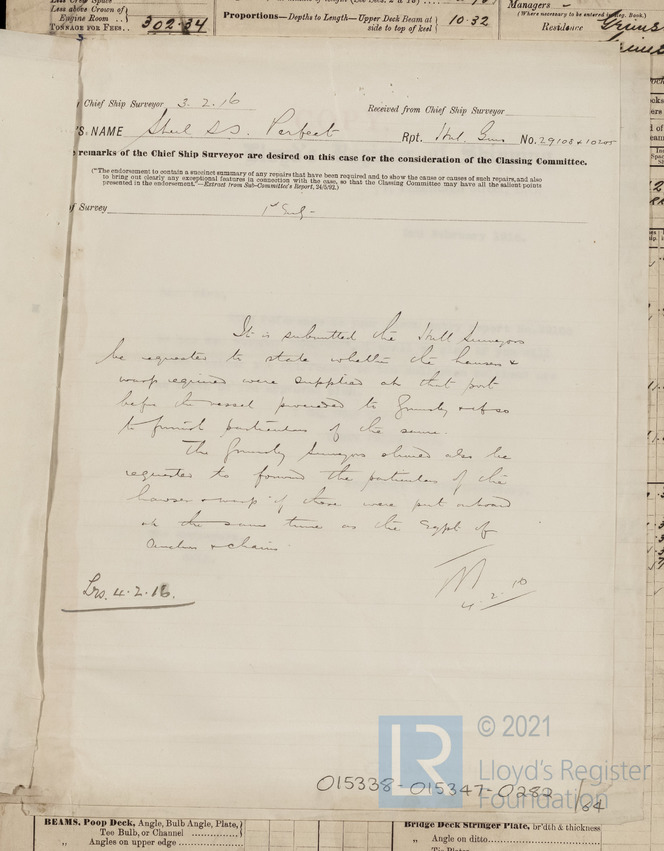 Less above Crown of
Engine Room ..
TONNAGE FOR FEES.. 302.34
Proportions—Depths to Length—Upper Deck Beam at
side to top of keel 10.32
Managers
(Where necessary to be entered in Reg. Book.)
Residence
Chief Ship Surveyor 3.2.16
Received from Chief Ship Surveyor
'S NAME Steel S.S. Perfect Rpt. Hul. Gms No. 29108 & 10205
remarks of the Chief Ship Surveyor are desired on this case for the consideration of the Classing Committee.
("The endorsement to contain a succinct summary of any repairs that have been required and to show the cause or causes of such repairs, and also
to bring out clearly any exceptional features in connection with the case, so that the Classing Committee may have all the salient points
presented in the endorsement."—Extract from Sub-Committee's Report, 24/5/92.)
of Survey
It is submitted the Hull Surveyors
be requested to state whether the hawser &
warp required were supplied at that port
before the vessel proceeded to Grimsby & if so
to furnish particulars of the same.
The Grimsby Surveyors should also be
requested to forward the particulars of the
hawser & warp if these were put onboard
at the same time as the Eqpt of
anchors & chains.
Lrs. 4.2.16.
4.2.16
© 2021
LR
Lloyd's Register
Foundation
015338-015347-0282 1/84
BEAMS, Poop Deck, Angle, Bulb Angle, Plate,
Tee Bulb, or Channel
„ Angles on upper edge
Bridge Deck Stringer Plate, br'dth & thickness
„ Angle on ditto